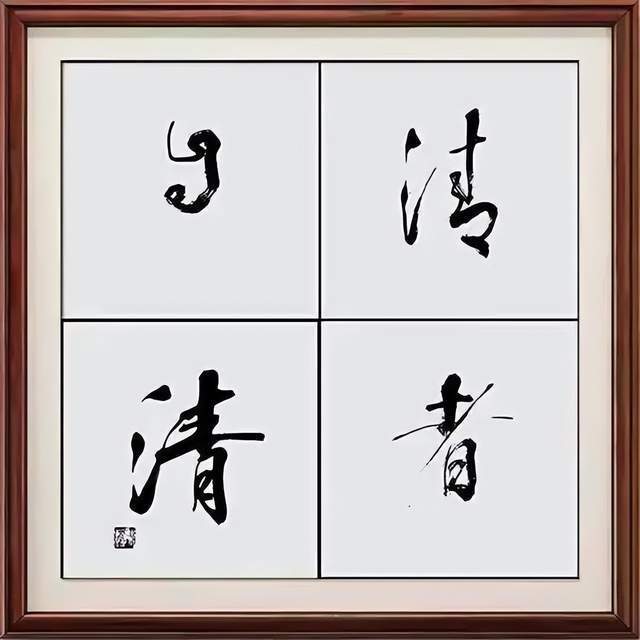 清者
自清